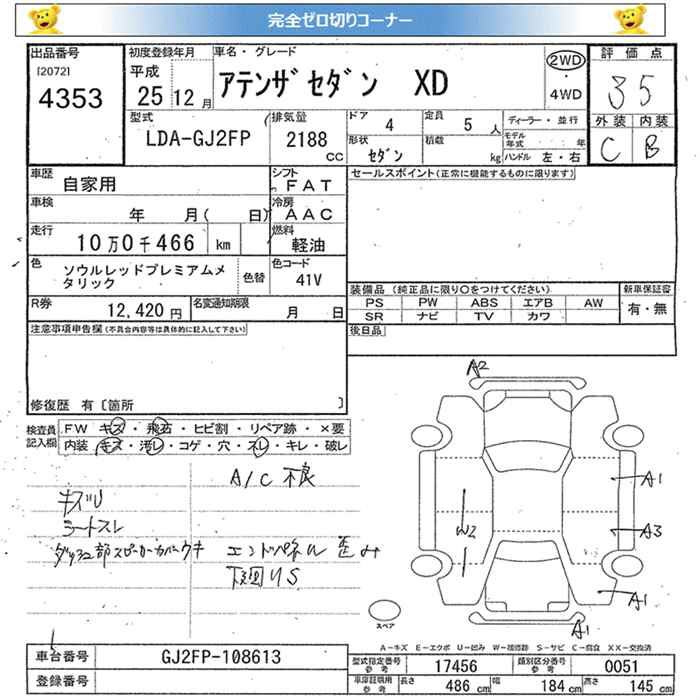 完全ゼロ切りコーナー
出品番号
[2072]
4353
初度登録年月
平成
25 12月
車名・グレード
アテンザセダン XD
2WD
・
4WD
評価点
35
外装 内装
C B
型式
LDA-GJ2FP
排気量
2188
CC
ドア
4
定員
5 人
形状
セダン
積載
kg
ディーラー・並行
モデル年式 年
ハンドル 左・右
車歴
自家用
シフト
FAT
車検
年 月( 日)
冷房
AAC
走行
10万0千466 km
燃料
軽油
色
ソウルレッドプレミアムメ
タリック
色替
色コード
41V
R券
12,420円
名変通知期限
月 日
セールスポイント(正常に機能するものに限ります)
装備品(純正品に限り○をつけてください)
PS PW ABS エアB AW
SR ナビ TV カワ
新車保証書
有・無
後日品
注意事項申告欄(不具合内容等は具体的に記入して下さい)
修復歴 有〔箇所 〕
検査員
記入欄
FW キズ・飛石・ヒビ割・リペア跡・×要
内装 キズ・汚レ・コゲ・穴・スレ・キレ・破レ
A/C 不良
キズU
シートスレ
エンドパネル 歪み
下回りS
A2
A1
A3
W2
A1
A1
スペア
A-キズ E-エクボ U-凹み W-補修跡 S-サビ C-腐食 XX-交換済
車台番号
GJ2FP-108613
登録番号
型式指定番号
参考
17456
類別区分番号
参考
0051
車庫証明用
参考
長さ 486 cm
幅 184 cm
高さ 145 cm